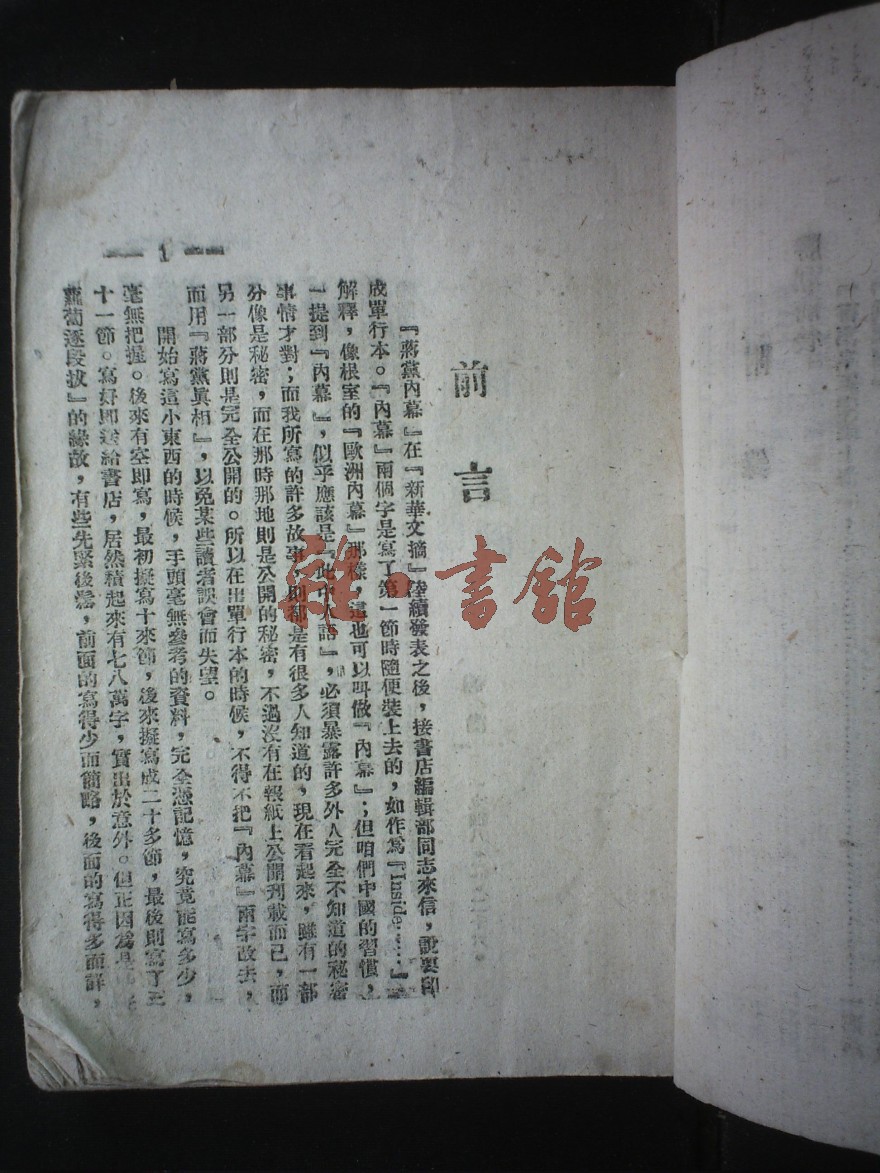 前言
『蔣黨內幕』在『新華文摘』陸續發表之後，接書店編輯部同志來信，說要印
成單行本。『內幕』兩個字是寫了第一節時隨便裝上去的，如作爲『Inside……』
解釋，像根室的『歐洲內幕』那樣，這也可以叫做『內幕』；但咱們中國的習慣，
一提到『內幕』，似乎應該是『此中人語』，必須暴露許多外人完全不知道的秘密
事情才對；而我所寫的許多故事，則都是有很多人知道的，現在看起來，雖有一部
分像是秘密，而在那時那地則是公開的秘密，不過沒有在報紙上公開刊載而已，而
另一部分則是完全公開的。所以在出單行本的時候，不得不把『內幕』兩字改去，
而用『蔣黨眞相』，以免某些讀者誤會而失望。
開始寫這小東西的時候，手頭毫無參考的資料，完全憑記憶，究竟能寫多少，
毫無把握。後來有空即寫，最初擬寫十來節，後來擬寫成二十多節，最後則寫了三
十一節。寫好即送給書店，居然積起來有七八萬字，實出於意外。但正因爲是
蘿蔔逐段拔』的緣故，有些先緊後鬆，前面的寫得少而簡略，後面的寫得多而詳，
1
雜·書館